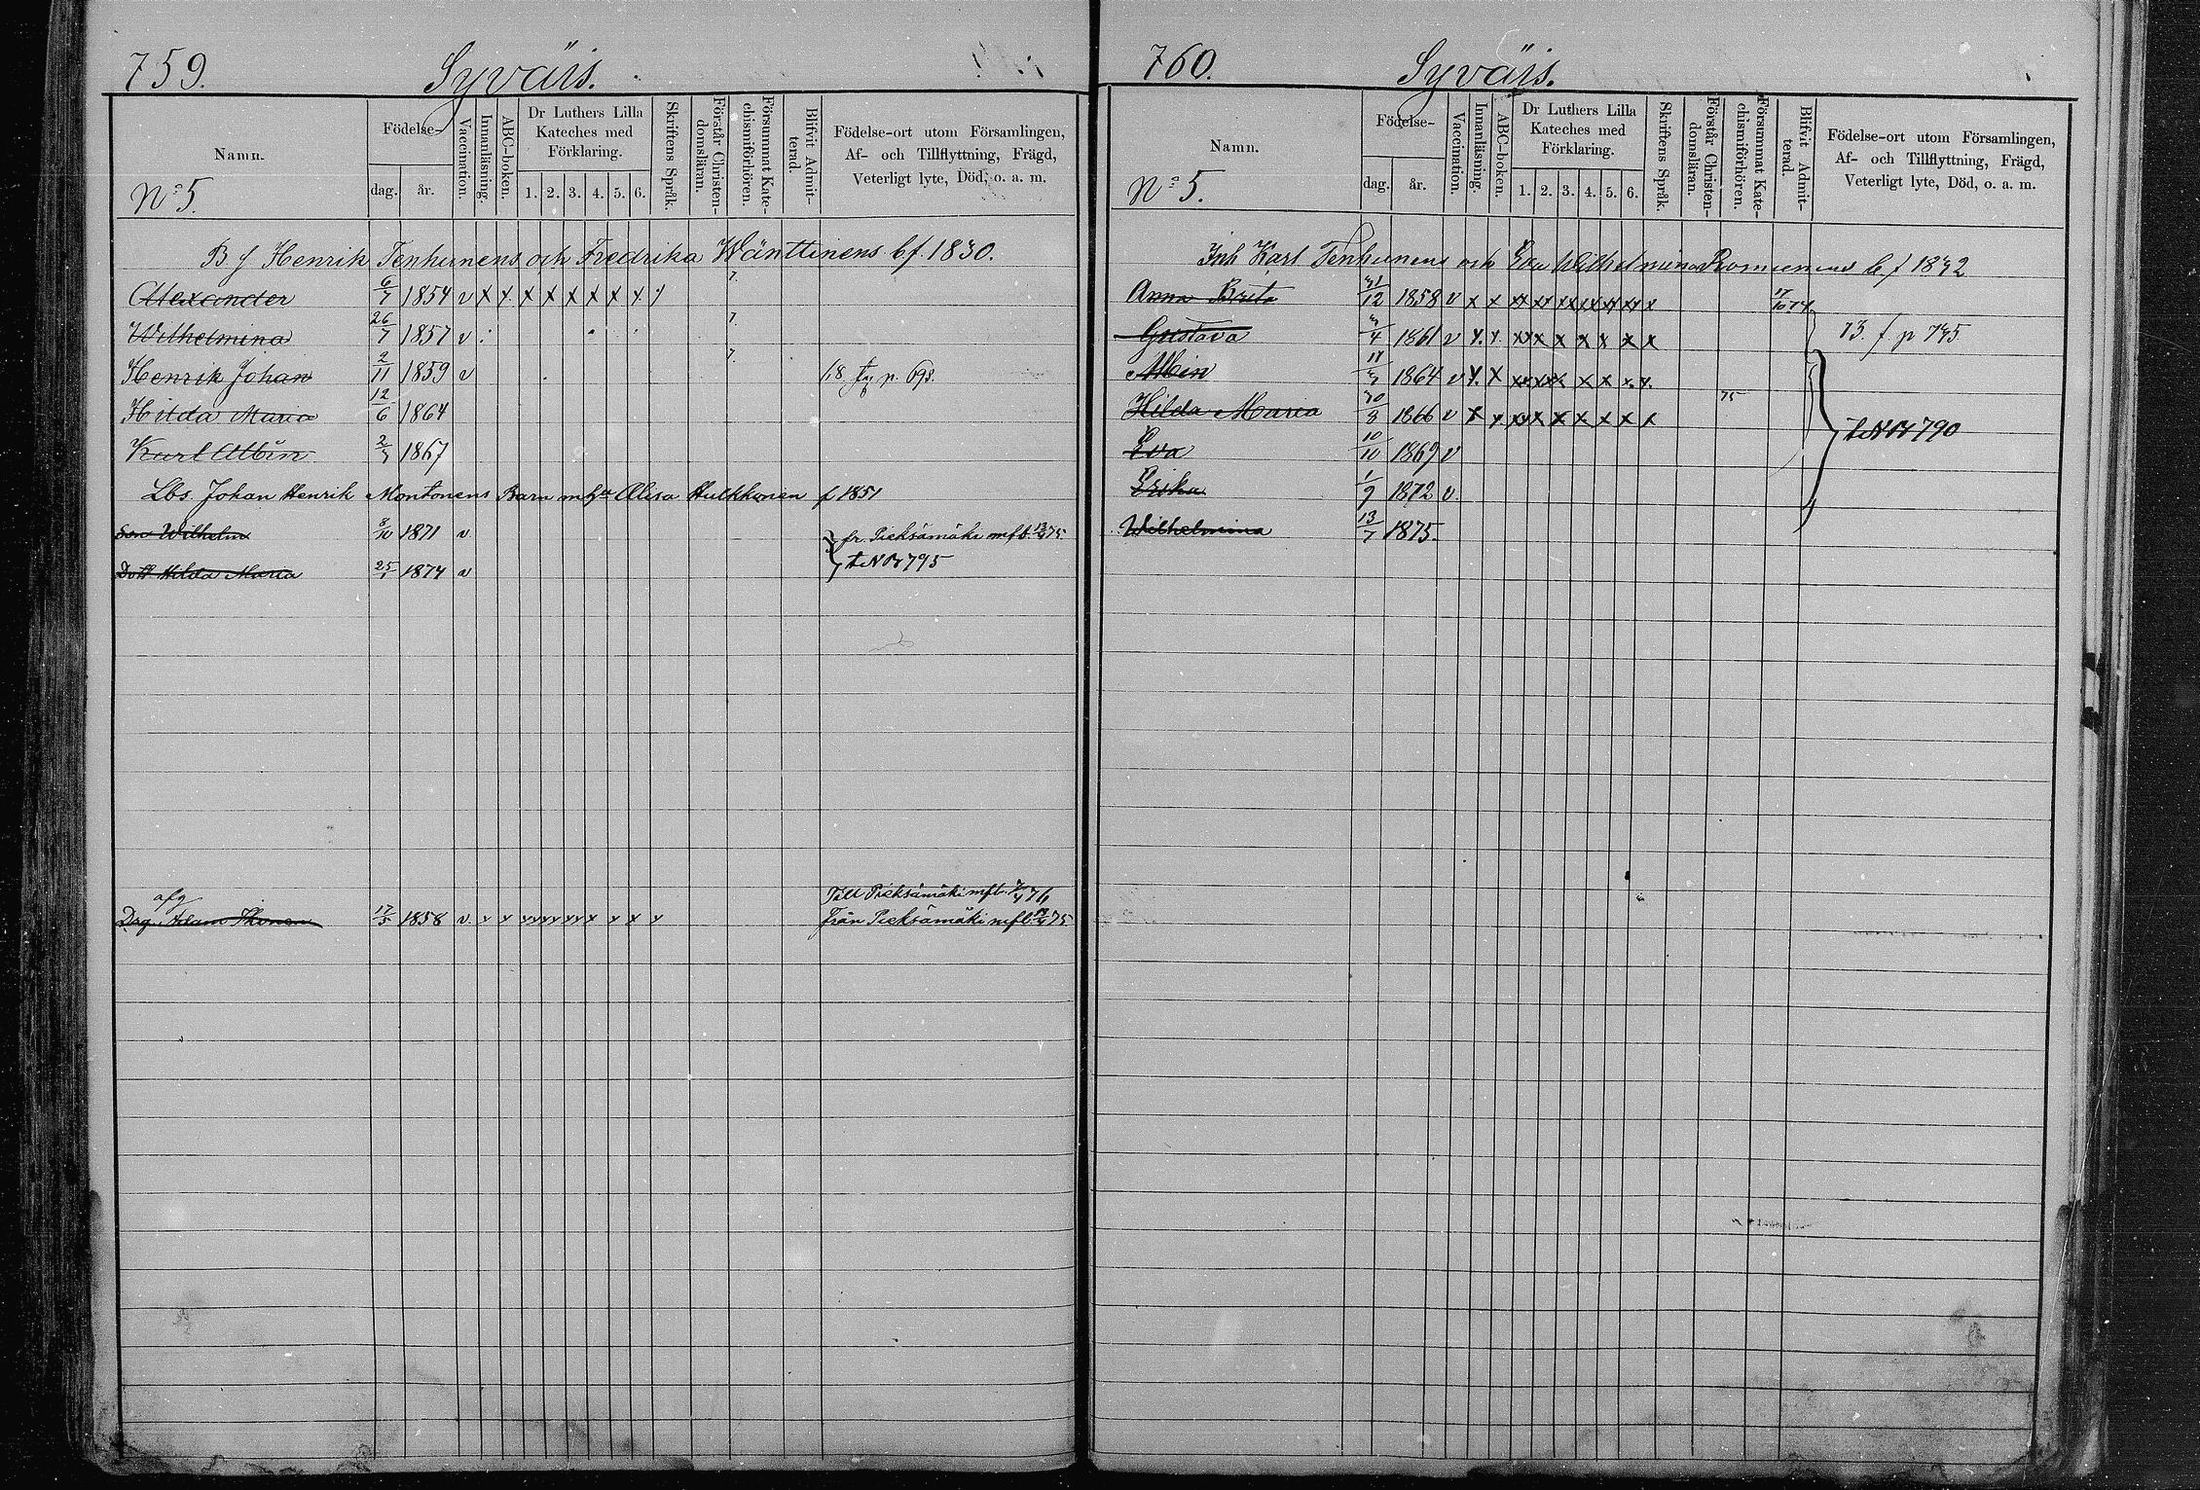 759.
Syväis.
Namn.
Födelse-
dag.
år.
Vaccination.
Innanläsning.
ABC-boken.
Dr Luthers Lilla
Kateches med
Förklaring.
1. 2. 3. 4. 5. 6.
Skriftens Språk.
Förstår Christen-
domsläran.
Försummat Kate-
chismiförhören.
Blifvit Admit-
terad.
Födelse-ort utom Församlingen,
Af- och Tillflyttning, Frägd,
Veterligt lyte, Död, o. a. m.
No 5.
B f Henrik Tenhunens och Fredrika Wänttinens b f. 1830.
Alexander 6/7 1854 v x x x x x x x x x 7.
Wilhelmina 26/7 1857 v 7.
Henrik Johan 2/11 1859 v 7. p. 698.
Hilda Maria 12/6 1864
Karl Albin 2/3 1867
Lbs. Johan Henrik Montonens Barn m hu Elisa Hulkkonen f 1851
Son Wilhelm 8/10 1871 v fr. Pieksämäki mfb. 75
Dott Hilda Maria 25/1 1874 v t N By 795
afg Till Pieksämäki mfb. 76
Drg. Adam Ihonen 17/5 1858 v. x x xx xx xx x x x x Från Pieksämäki mfb 75
760.
Syväis.
Namn.
Födelse-
dag.
år.
Vaccination.
Innanläsning.
ABC-boken.
Dr Luthers Lilla
Kateches med
Förklaring.
1. 2. 3. 4. 5. 6.
Skriftens Språk.
Förstår Christen-
domsläran.
Försummat Kate-
chismiförhören.
Blifvit Admit-
terad.
Födelse-ort utom Församlingen,
Af- och Tillflyttning, Frägd,
Veterligt lyte, Död, o. a. m.
No 5.
Inh Karl Tenhunens och Eva Wilhelmina b f 1832
Anna Brita 31/12 1858 v x x xx xx xx xx xx xx x 17/10 74
Gustava 3/4 1861 v x. x. xx x x x x x x 73. f p 735
Albin 1864 v x. x xx xx x x x. x.
Hilda Maria 30/8 1866 v x x xx x x x x x x 75 t N By 790
Eva 10/10 1869 v
Erika 1/9 1872 v.
Wilhelmina 13/7 1875.